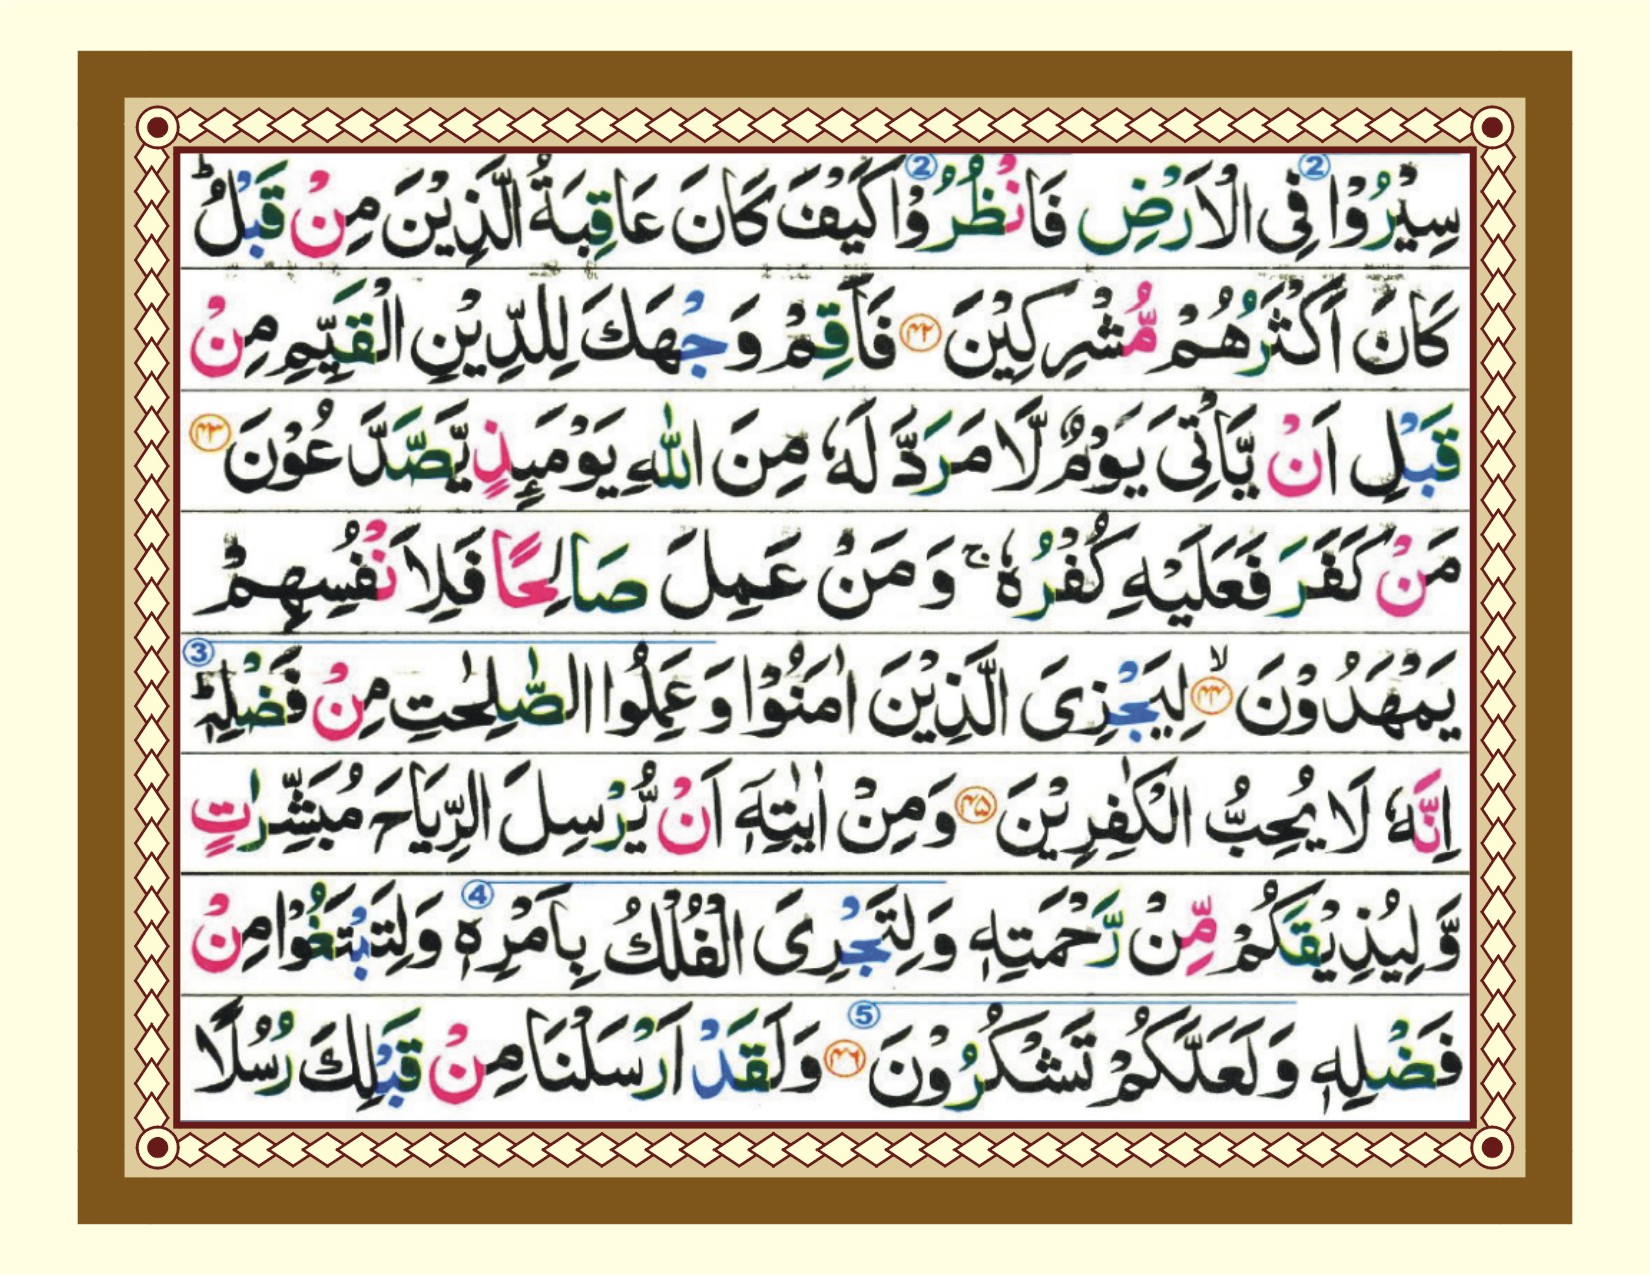 سِيْرُوْا فِى الْاَرْضِ فَانْظُرُوْا كَيْفَ كَانَ عَاقِبَةُ الَّذِيْنَ مِنْ قَبْلُ ؕ
كَانَ اَكْثَرُهُمْ مُّشْرِكِيْنَ ۴۲ فَاَقِمْ وَجْهَكَ لِلدِّيْنِ الْقَيِّمِ مِنْ
قَبْلِ اَنْ يَّاْتِىَ يَوْمٌ لَّا مَرَدَّ لَهٗ مِنَ اللّٰهِ يَوْمَىِٕذٍ يَّصَّدَّعُوْنَ ۴۳
مَنْ كَفَرَ فَعَلَيْهِ كُفْرُهٗ ۚ وَمَنْ عَمِلَ صَالِحًا فَلِاَنْفُسِهِمْ
يَمْهَدُوْنَ ۙ ۴۴ لِيَجْزِىَ الَّذِيْنَ اٰمَنُوْا وَعَمِلُوا الصّٰلِحٰتِ مِنْ فَضْلِهٖ ؕ ③
اِنَّهٗ لَا يُحِبُّ الْكٰفِرِيْنَ ۴۵ وَمِنْ اٰيٰتِهٖۤ اَنْ يُّرْسِلَ الرِّيَاحَ مُبَشِّرٰتٍ
وَّلِيُذِيْقَكُمْ مِّنْ رَّحْمَتِهٖ وَلِتَجْرِىَ الْفُلْكُ بِاَمْرِهٖ ④ وَلِتَبْتَغُوْا مِنْ
فَضْلِهٖ وَلَعَلَّكُمْ تَشْكُرُوْنَ ⑤ ۴۶ وَلَقَدْ اَرْسَلْنَا مِنْ قَبْلِكَ رُسُلًا